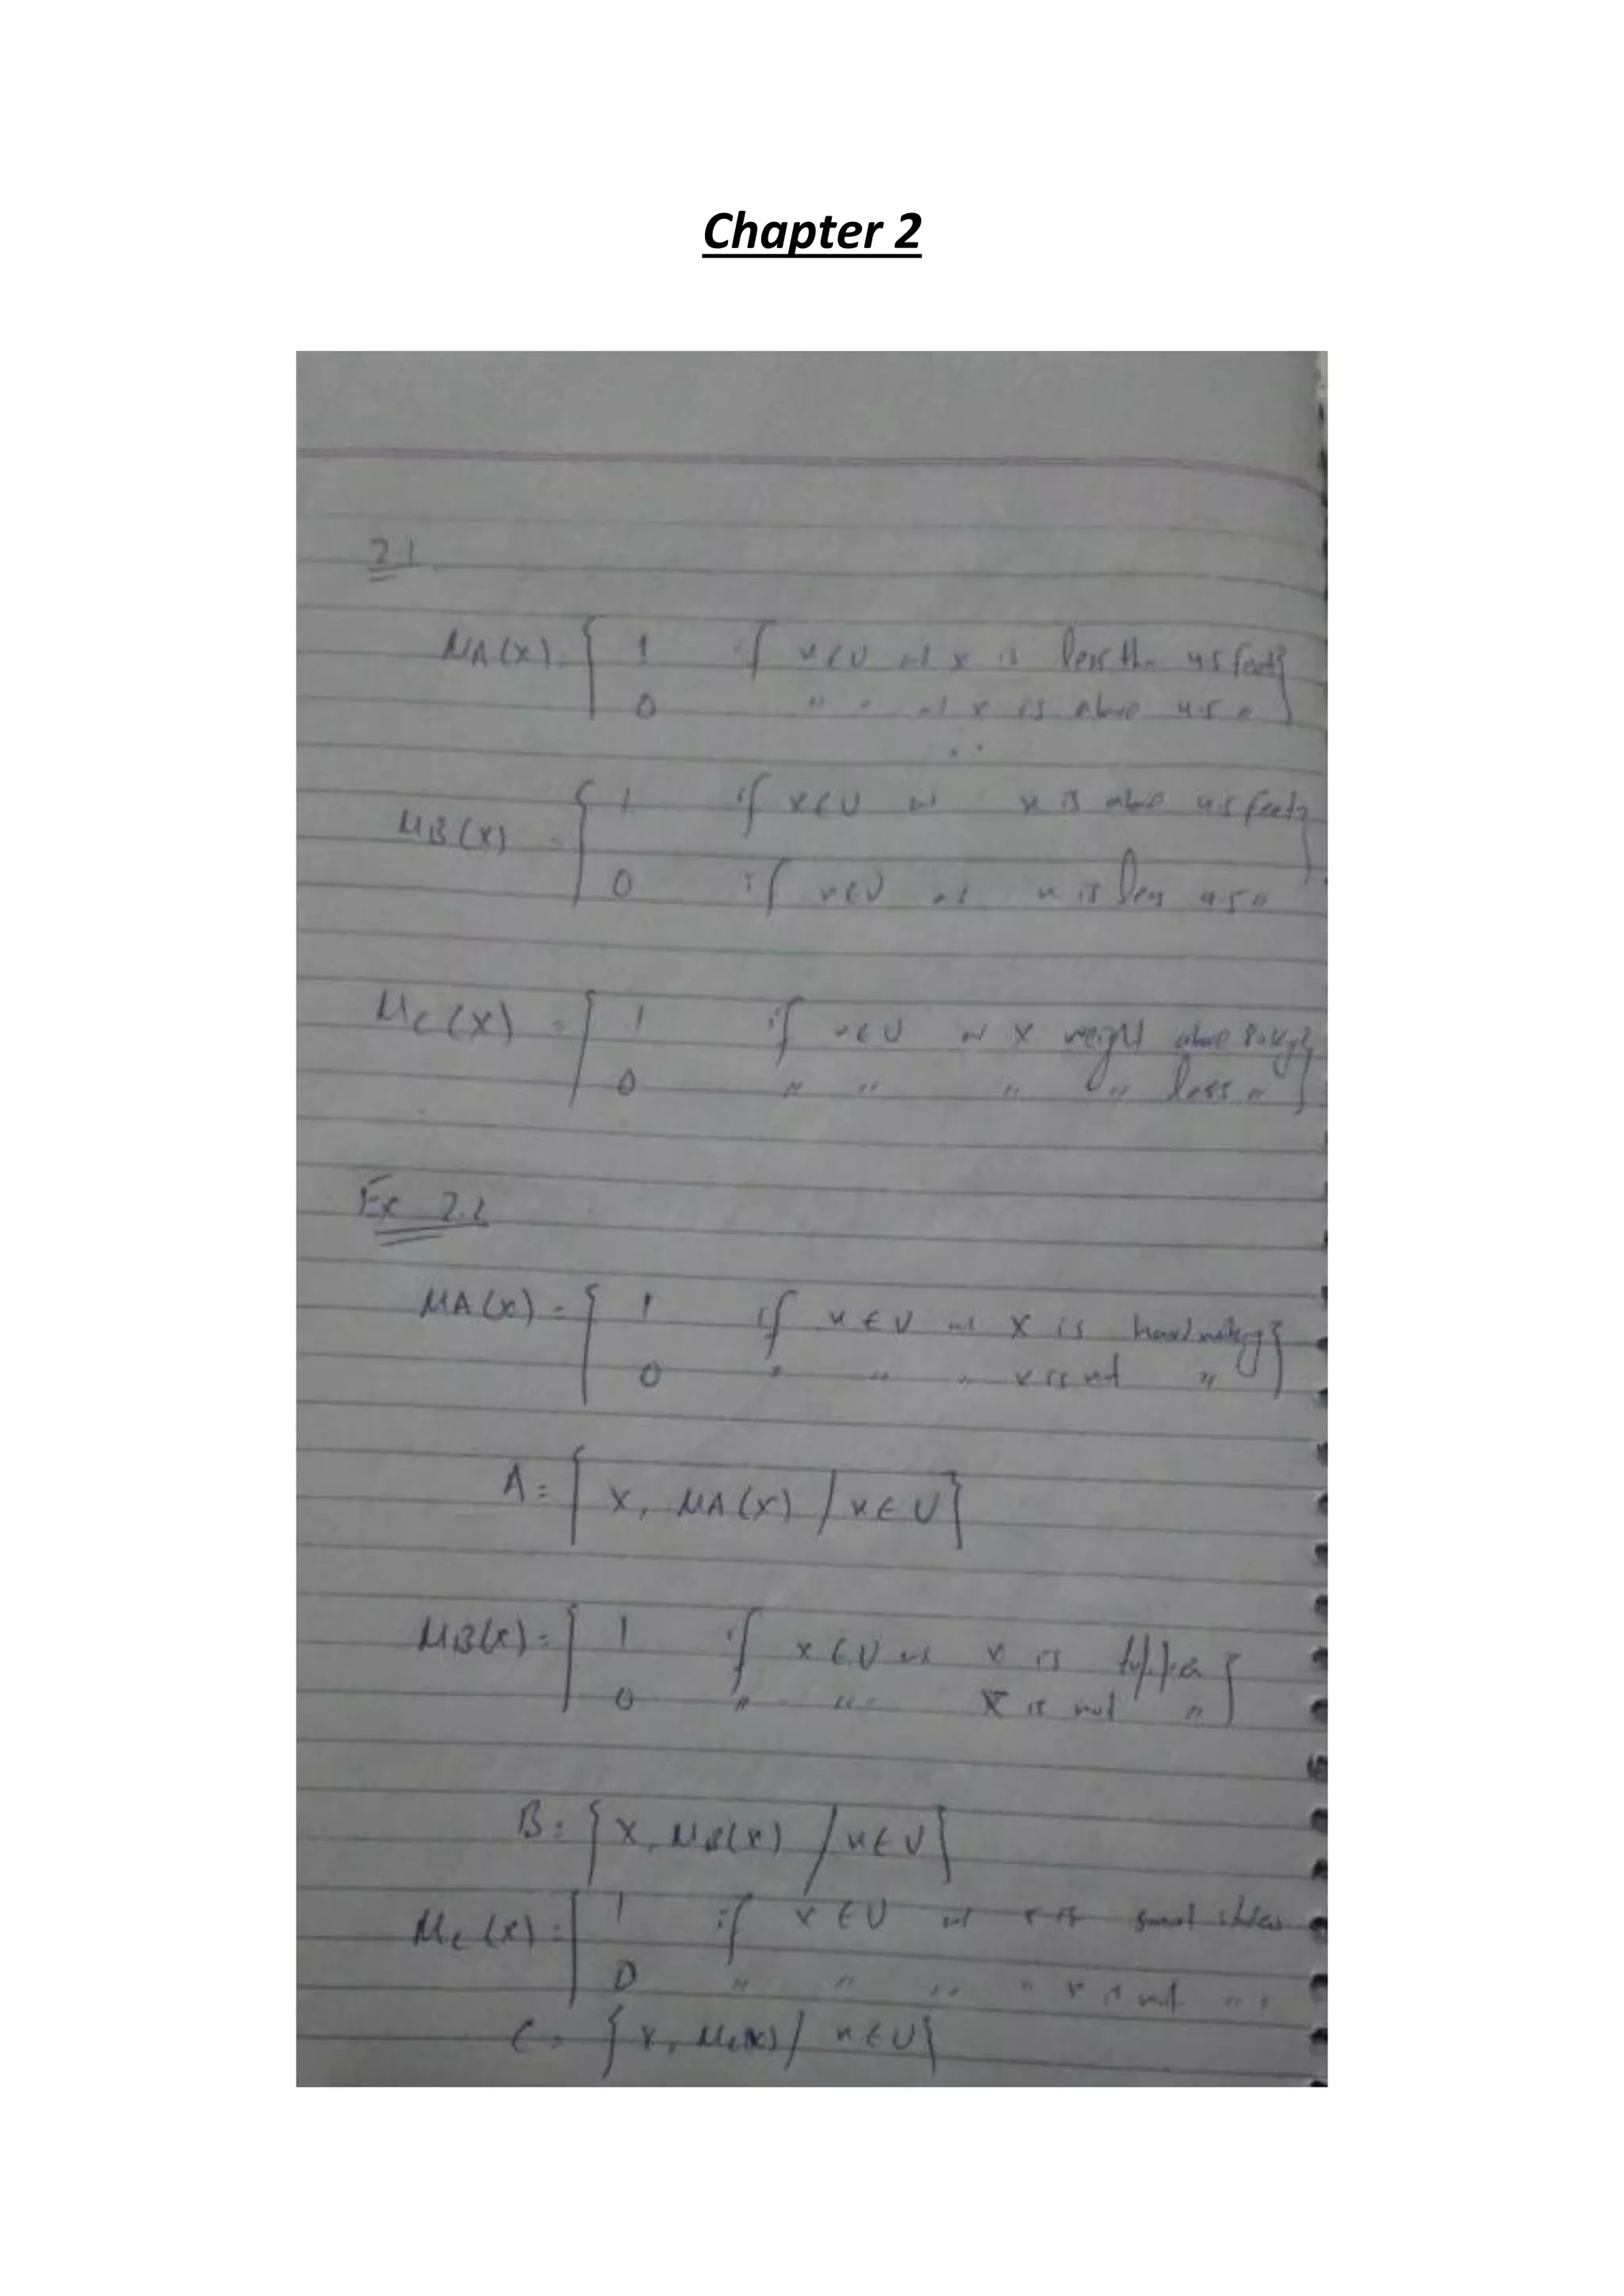 Chapter 2
2.1
μA(x) = { 1 if x∈U and x is less than 4.5 feet}
0 " " and x is above 4.5 "
μB(x) = { 1 if x∈U and x is above 4.5 feet}
0 if x∈U and x is less 4.5 "
μC(x) = { 1 if x∈U and x weight above 80kg}
0 " " " " less "
Ex 2.2
μA(x) = { 1 if x∈U and x is hardworking}
0 " " " x is not "
A = { x, μA(x) / x∈U}
μB(x) = { 1 if x∈U and x is }
0 " " " x is not "
B = { x, μB(x) / x∈U}
μC(x) = { 1 if x∈U and x is smart
0 " " " " x is not " "
C = { x, μC(x) / x∈U}